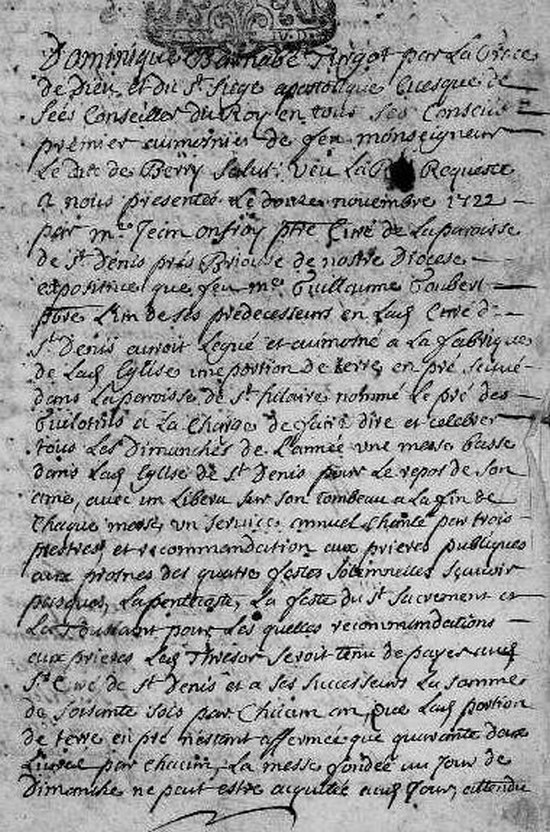 Dominique Barnabé Turgot par la Grace
de Dieu et du St Siege apostolique Evesque de
Sées Conseiller du Roy en tous ses Conseils
premier aumonier de feu monseigneur
Le duc de Berry Salut. Veu La Requeste
a nous presentée Le douze novembre 1722
par me Jean onfroy ptre Curé de La paroisse
de St Denis prés Briouse de nostre Diocese
expositive que feu me Guillaume Goubert
ptre L'un de ses predecesseurs en Lad Cure de
St Denis auroit Legué et aumosné a La fabrique
de Lad Eglise une portion de terre en pré scitué
dans La paroisse de St hilaire nommé Le pré des
a La Charge de faire dire et celebrer
tous Les Dimanches de L'année une messe basse
dans Lad Eglise de St Denis pour Le repos de son
ame, avec un Libera sur son tombeau a La fin de
Chaque messe, un service annuel Chanté par trois
prestres, et recommandation aux prieres publiques
aux prosnes des quatre festes solemnelles sçavoir
pasques, La penthecoste, La feste du St Sacrement et
La Toussaint pour Les quelles recommandations
aux prieres Led Thresor seroit tenu de payer aud
Sr Curé de St Denis et a ses successeurs La somme
de soisante sols par Chacun an, que Lad portion
de terre en pré n'estant affermée que quarante deux
Livres par chacun, La messe fondée au Jour de
Dimanche ne peut estre aquitée aud Jour, attendu